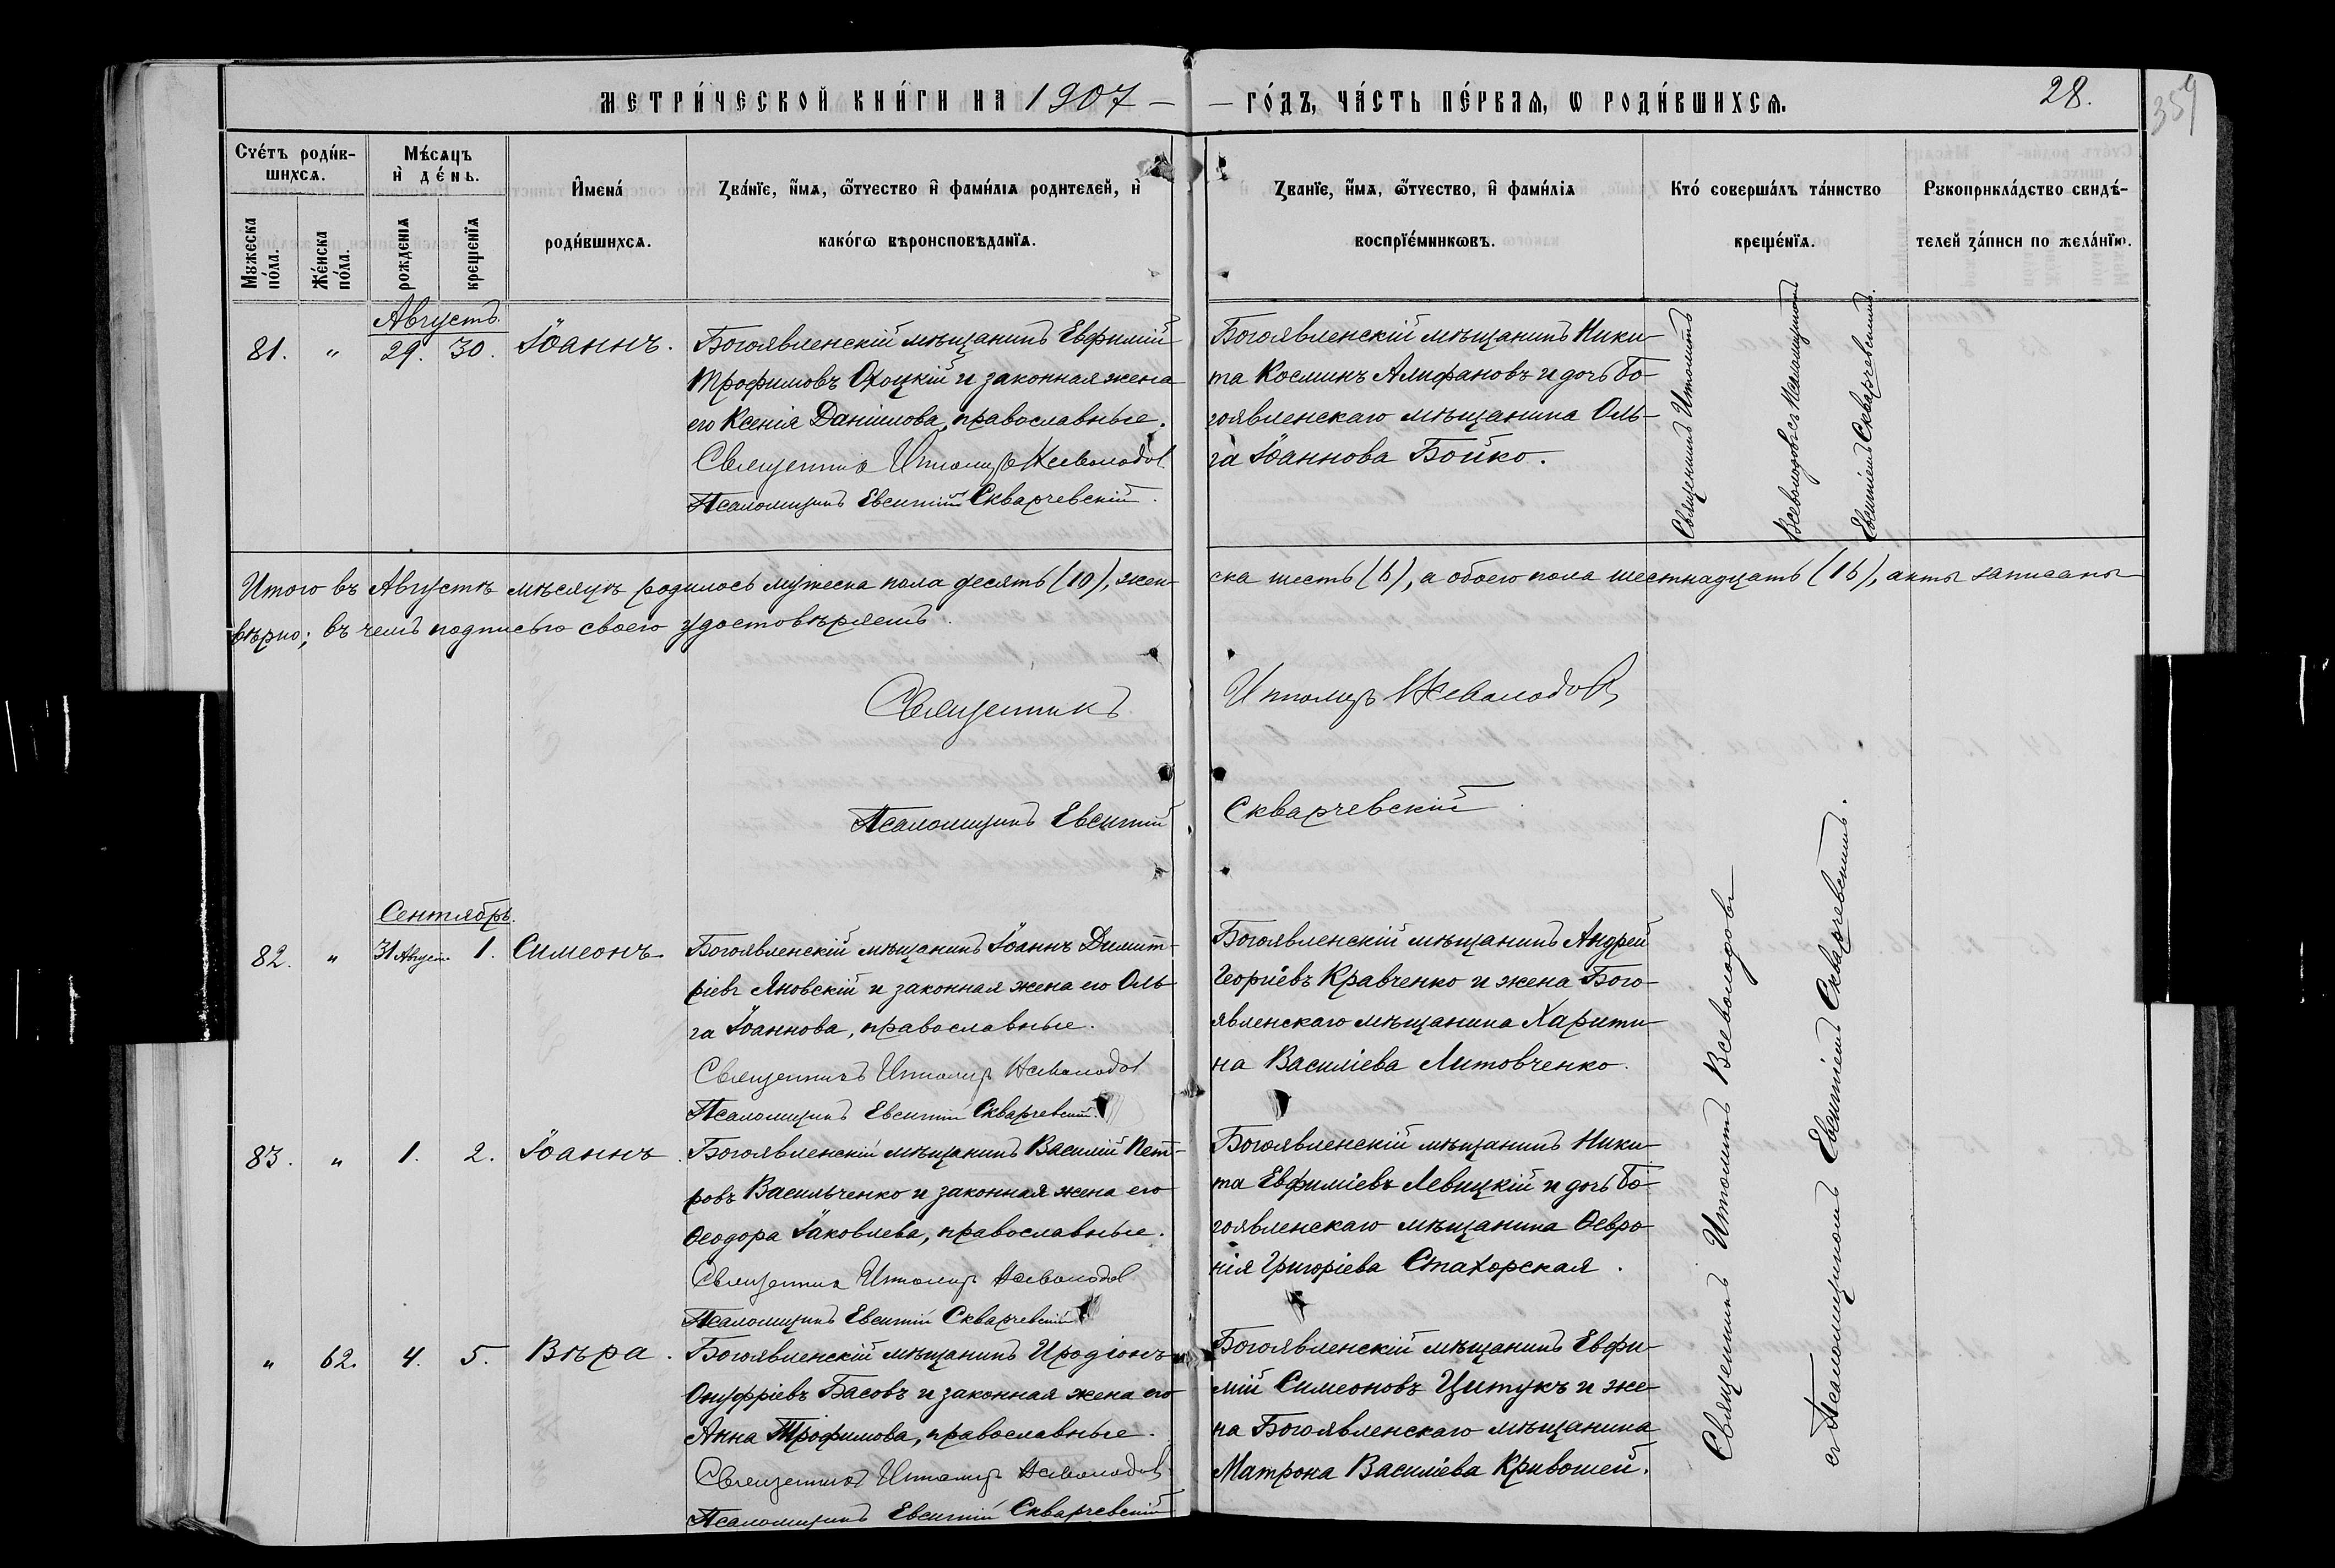 МЕТРИ́ЧЕСКОЙ КНИ́ГИ НА 1907 — — ГО́ДЪ, ЧА́СТЬ ПЕ́РВАѦ, Ѡ РОДИ́ВШИХСѦ.
28.
354
Сче́тъ роди́в-
шихсѧ.
Мужеска по́ла.
Же́нска по́ла.
Мѣ́сѧцъ
и҆ де́нь.
рожденїѧ
крещенїѧ
И҆мена́
роди́вшихсѧ.
Ꙁва́нїе, и҆́мѧ, ѻ҆́тчество и҆ фами́лїѧ родителей, и҆
како́гѡ вѣроисповѣданїѧ.
Ꙁванїе, и҆́мѧ, ѻ҆́тчество, и҆ фами́лїѧ
воспрїе́мникѡвъ.
Кто́ соверша́лъ та́инство
креще́нїѧ.
Рꙋкоприкла́дство свидѣ́-
телей ꙁа́писи по жела́нїю.
Августъ.
81. „ 29. 30. Іоаннъ.
Богоявленскій мѣщанинъ Евфимій
Трофимовъ Охоцкій и законная жена
его Ксенія Даніилова, православные.
Священникъ Ипполитъ Всеволодовъ
Псаломщикъ Евсигній Скваргевскій.
Богоявленскій мѣщанинъ Ники-
та Косминъ Алифановъ и дочь Бо-
гоявленскаго мѣщанина Оль-
га Іоаннова Бойко.
Священникъ Ипполитъ
Всеволодовъ съ Псаломщикомъ
Евсигніемъ Скваргевскимъ.
Итого въ Августѣ мѣсяцѣ родилось мужеска пола десять (10), жен-
ска шесть (6), а обоего пола шестнадцать (16), акты записаны
вѣрно; въ чемъ подписью своею удостовѣряемъ.
Священникъ Ипполитъ Всеволодовъ
Псаломщикъ Евсигній Скваргевскій
Сентябрь.
82. „ 31 Август. 1. Симеонъ
Богоявленскій мѣщанинъ Іоаннъ Димит-
ріевъ Яновскій и законная жена его Оль-
га Іоаннова, православные.
Священникъ Ипполитъ Всеволодовъ
Псаломщикъ Евсигній Скваргевскій.
Богоявленскій мѣщанинъ Андрей
Георгіевъ Кравченко и жена Бого-
явленскаго мѣщанина Харити-
на Василіева Литовченко.
83. „ 1. 2. Іоаннъ.
Богоявленскій мѣщанинъ Василій Пет-
ровъ Васильченко и законная жена его
Ѳеодора Іаковлева, православные.
Священникъ Ипполитъ Всеволодовъ
Псаломщикъ Евсигній Скваргевскій
Богоявленскій мѣщанинъ Ники-
та Евфиміевъ Левицкій и дочь Бо-
гоявленскаго мѣщанина Ѳевро-
нія Григоріева Стахорская.
„ 62. 4. 5. Вѣра.
Богоявленскій мѣщанинъ Иродіонъ
Онуфріевъ Басовъ и законная жена его
Анна Трофимова, православные.
Священникъ Ипполитъ Всеволодовъ
Псаломщикъ Евсигній Скваргевскій
Богоявленскій мѣщанинъ Евфи-
мій Симеоновъ Цитукъ и же-
на Богоявленскаго мѣщанина
Матрона Василіева Кривошей.
Священникъ Ипполитъ Всеволодовъ
съ Псаломщикомъ Евсигніемъ Скваргевскимъ.